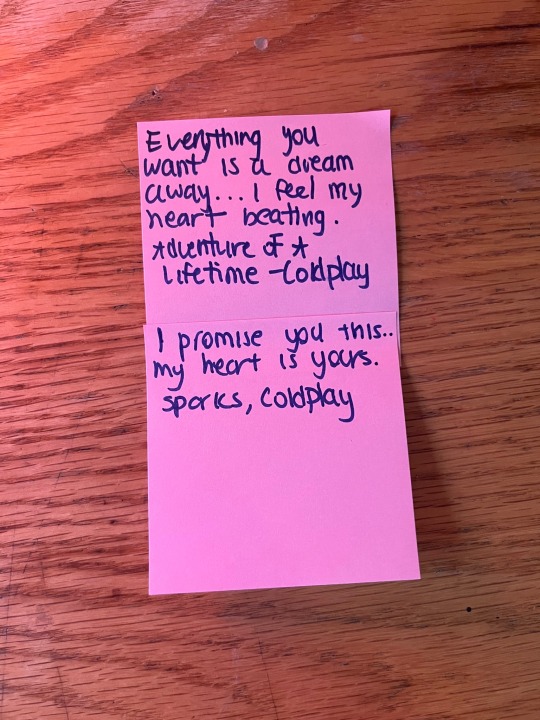 Everything you
want is a dream
away... I feel my
heart beating.
*dventure of *
Lifetime -Coldplay
I promise you this..
my heart is yours.
sparks, Coldplay